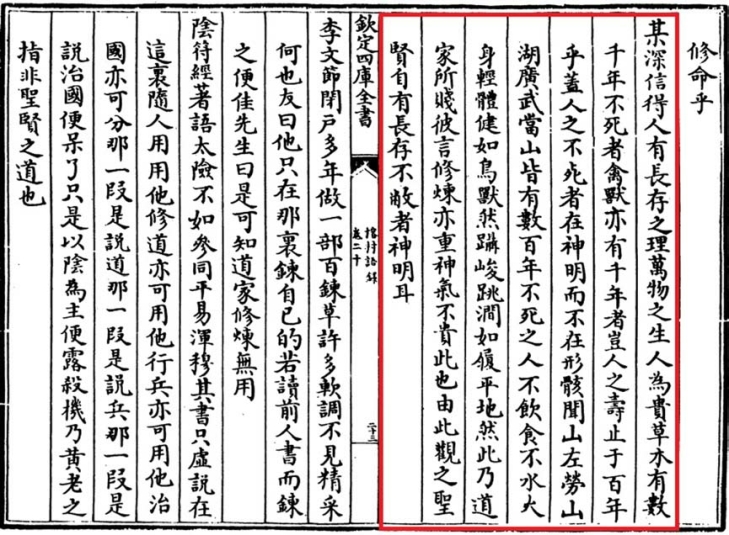 修命乎
某深信得人有長存之理萬物之生人為貴草木有數
千年不死者禽獸亦有千年者豈人之壽止于百年
乎蓋人之不死者在神明而不在形骸聞山左勞山
湖廣武當山皆有數百年不死之人不飲食不水火
身輕體健如鳥獸然躋峻跳澗如履平地然此乃道
家所賤彼言修煉亦重神氣不貴此也由此觀之聖
賢自有長存不敝者神明耳
欽定四庫全書
榕村語錄
卷二十
二十三
李文節閉戶多年做一部百鍊草許多軟調不見精采
何也友曰他只在那裏鍊自已的若讀前人書而鍊
之便佳先生曰是可知道家修煉無用
陰符經著語太險不如參同平易渾穆其書只虛說在
這裏隨人用用他修道亦可用他行兵亦可用他治
國亦可分那一段是說道那一段是說兵那一段是
說治國便呆了只是以陰為主便露殺機乃黃老之
指非聖賢之道也